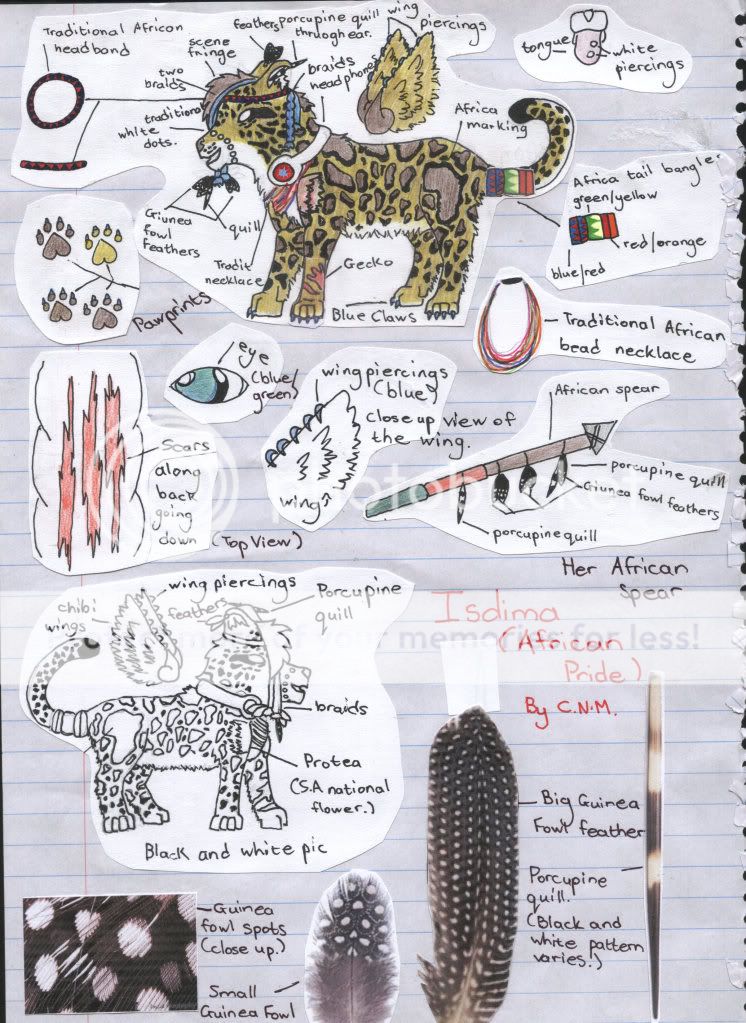 Traditional African
headband
feathers
porcupine quill
through ear.
wing
piercings
scene
fringe
braids
headphones
two
braids
traditional
white
dots.
Africa
marking
tongue
white
piercings
Africa tail bangle
green/yellow
red/orange
blue/red
Giunea
fowl
feathers
quill
Tradit
necklace
Gecko
Blue Claws
Pawprints
Traditional African
bead necklace
eye
(blue/
green)
wing piercings
(blue)
close up view of
the wing.
wing
African spear
porcupine quill
Giunea fowl feathers
porcupine quill
Her African
Spear
Scars
along
back
going
down
(Top View)
wing piercings
chibi
wings
feathers
Porcupine
quill
braids
Protea
(S.A national
flower.)
Black and white pic
Isdima
(African
Pride)
By C.N.M.
Big Guinea
Fowl feather
Porcupine
quill.
(Black and
white pattern
varies.)
Guinea
fowl spots
(close up.)
Small
Guinea Fowl
photobucket
of your memories for less!